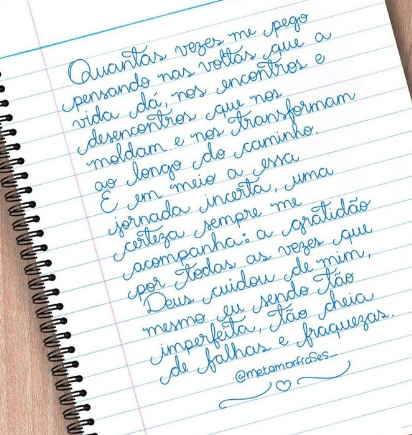 Quantas vezes me pego
pensando nas voltas que a
vida dá, nos encontros e
desencontros que nos
moldam e nos transformam
ao longo do caminho.
E em meio a essa
jornada incerta, uma
certeza sempre me
acompanha: a gratidão
por todas as vezes que
Deus cuidou de mim,
mesmo eu sendo tão
imperfeita, tão cheia
de falhas e fraquezas.
@metamorfrases_